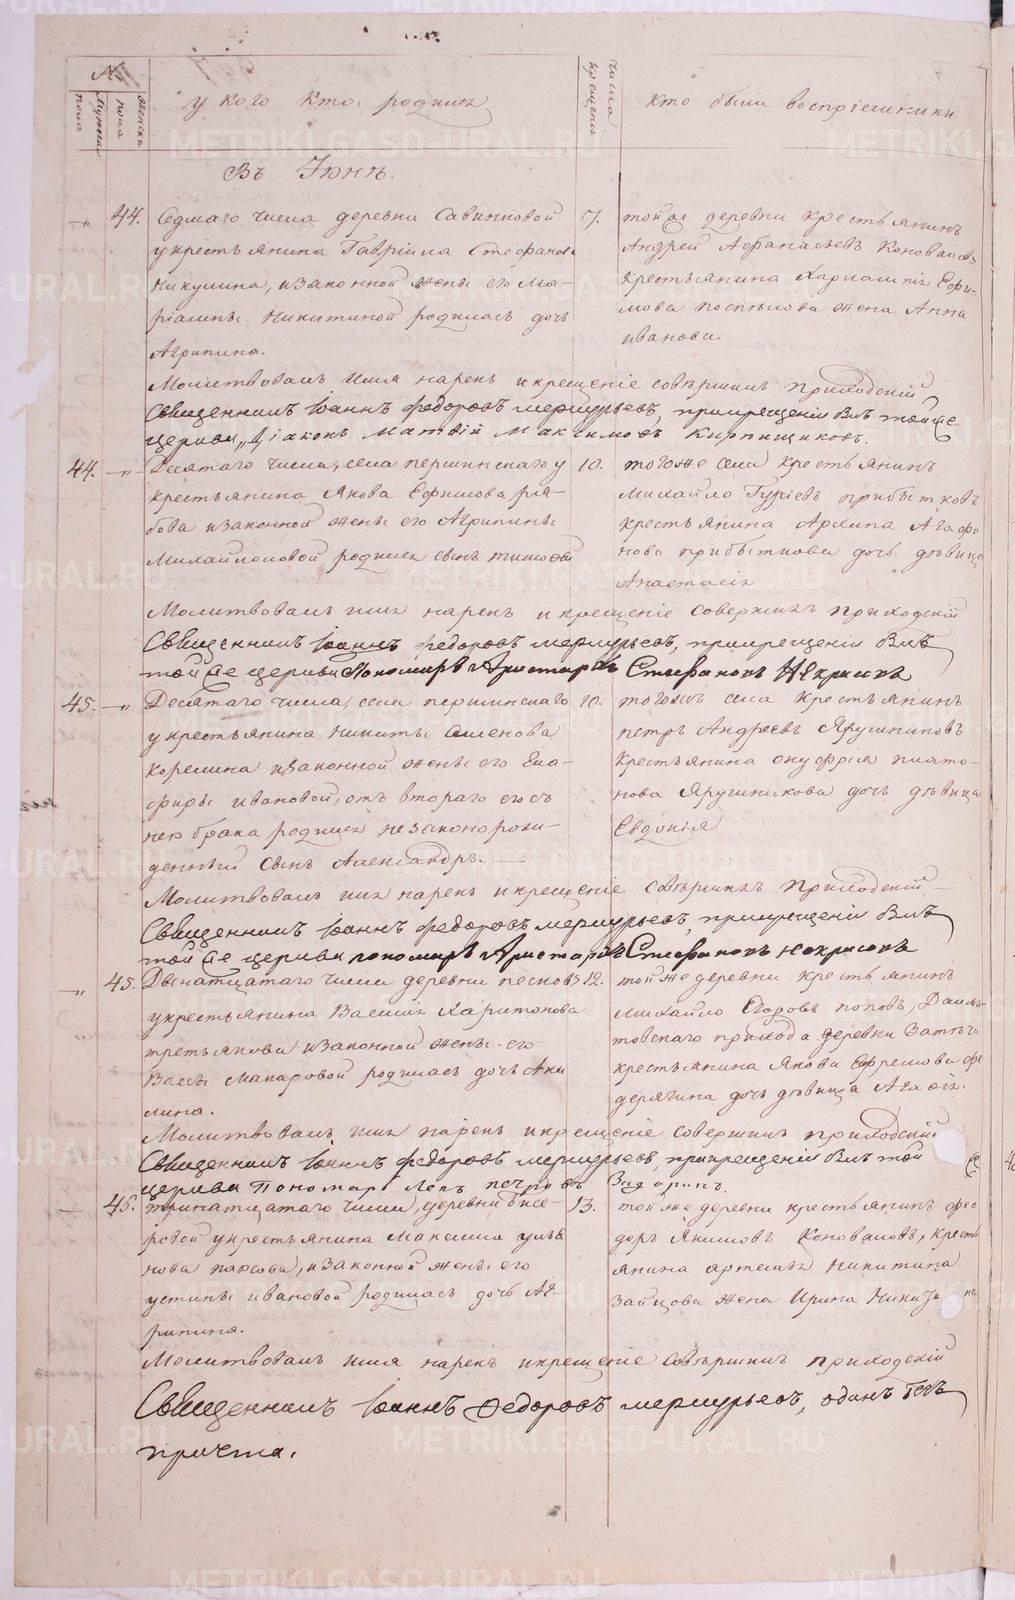 №
Мужеска пола
Женска пола
у кого кто родился
числа крещенія
кто были воспріемники
Въ Іюнѣ.
44. Седмаго числа деревни Савинковой
укрестьянина Гавріила Стефанова
Никулина, изаконной жены его Ма-
ріамны Никитиной родилась дочь
Агрипина.
7.
тойже деревни крестьянинъ
Андрей Афанасьевъ Коноваловъ
крестьянина Харлампія Ефи-
мова поспѣлова жена Анна
иванова.
Молитвовалъ имя нарекъ икрещеніе совѣршилъ приходскій
Священникъ Іоаннъ федоровъ меркурьевъ, прикрещеніи былъ тойже
церкви Діаконъ Матвій Максимовъ Кирпищиковъ.
44. Десятаго числа, села першинскаго у
крестьянина Якова Ефимова ря-
бова изаконной жены его Агрипины
Михайловой родился сынъ тимофей
10.
тогоже села крестьянинъ
михайло Гуріевъ прибытковъ
крестьянина Архипа Агафо
нова прибыткова дочь дѣвица
Анастасія
Молитвовалъ имя нарекъ икрещеніе совершилъ приходскій
Священникъ Іоаннъ федоровъ меркурьевъ, прикрещеніи былъ
тойже церкви Пономарь Аристархъ Стефановъ Некрасовъ
45. Десятаго числа, села першинскаго
укрестьянина никиты семенова
корелина изаконной жены его Гла-
фиры ивановой, отъ втораго его съ
нею брака родился незаконорож-
денный сынъ Александръ.
10.
тогожъ села крестьянинъ
петръ Андреевъ Ярушниковъ
крестьянина онуфрія плато-
нова Ярушникова дочь дѣвица
Евдокія
Молитвовалъ имя нарекъ икрещеніе совѣршилъ приходскій
Священникъ Іоаннъ федоровъ меркурьевъ, прикрещеніи былъ
тойже церкви пономарь Аристархъ Стефановъ некрасовъ
45. Двенатцатаго числа деревни песковъ
укрестьянина Василія Харитонова
третьякова изаконной жены его
Вассы Макаровой родилась дочь Аки
лина.
12.
тойже деревни крестьянинъ
михайло Егоровъ поповъ, Далма-
товскаго прихода деревни Затеча
крестьянина Якова Ефремова фе
дерягина дочь дѣвица Агафія.
Молитвовалъ имя нарекъ икрещеніе совершилъ приходскій
Священникъ Іоаннъ федоровъ меркурьевъ, прикрещеніи былъ той же
церкви Пономарь Левъ петровъ
46. тринатцатаго числа, деревни бисе-
ровой укрестьянина Максима улья
нова пахова, изаконной жены его
устины ивановой родилась дочь Аг-
рипина.
13.
тойже деревни крестьянинъ фео
доръ Якимовъ Коноваловъ, кресть
янина артемья никитина
Зайцова жена Ирина никитина
Молитвовалъ имя нарекъ икрещеніе совѣршилъ приходскій
Священникъ Іоаннъ федоровъ меркурьевъ, одинъ безъ
причта.